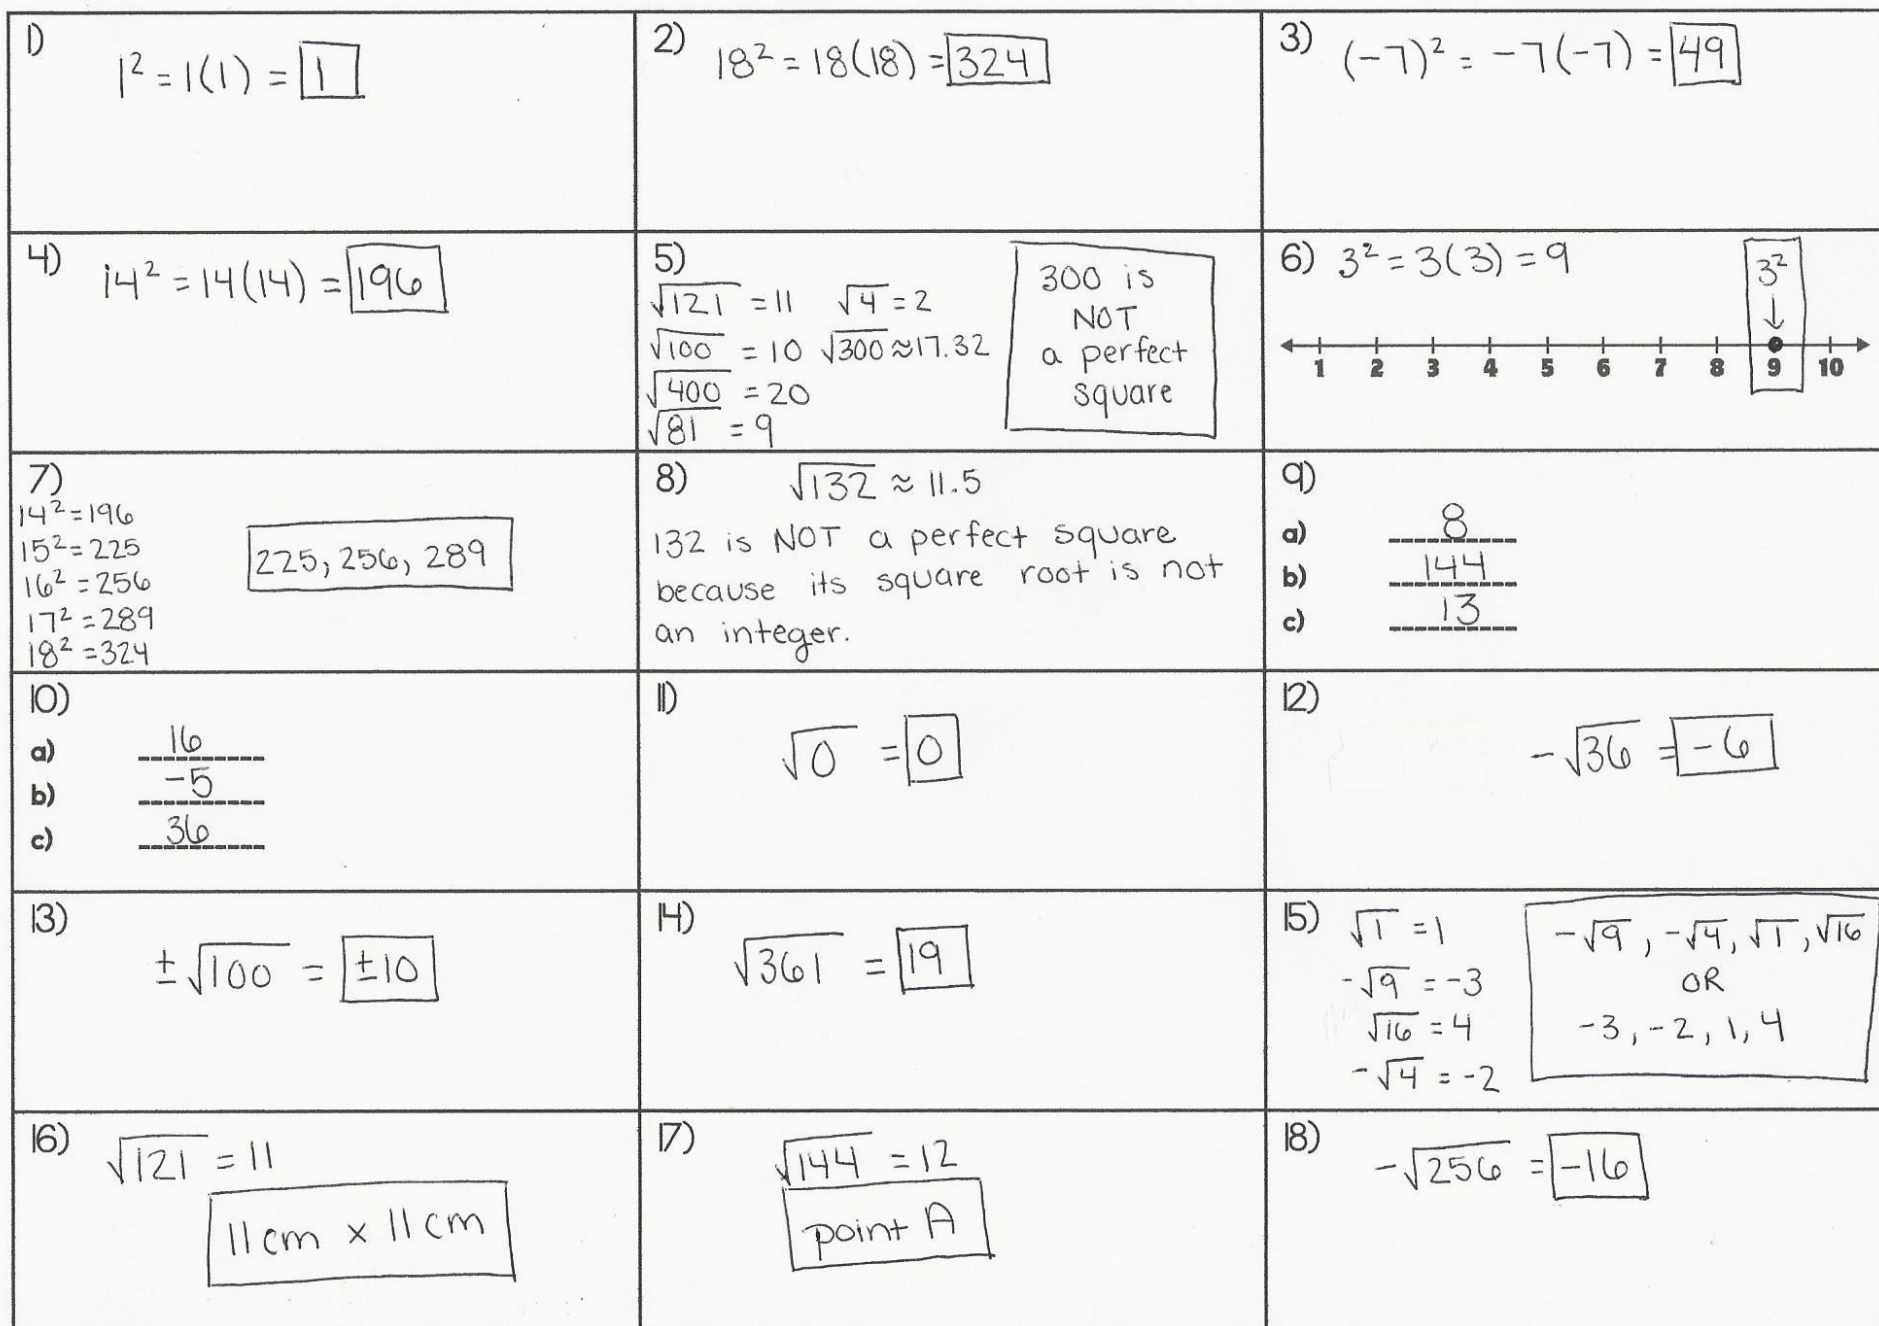 1)
1² = 1(1) = 1
2)
18² = 18(18) = 324
3)
(-7)² = -7(-7) = 49
4)
14² = 14(14) = 196
5)
√121 = 11 √4 = 2
√100 = 10 √300 ≈ 17.32
√400 = 20
√81 = 9
300 is
NOT
a perfect
square
6) 3² = 3(3) = 9
3²
↓
1 2 3 4 5 6 7 8 9 10
7)
14² = 196
15² = 225
16² = 256
17² = 289
18² = 324
225, 256, 289
8) √132 ≈ 11.5
132 is NOT a perfect square
because its square root is not
an integer.
9)
a) 8
b) 144
c) 13
10)
a) 16
b) -5
c) 36
11)
√0 = 0
12)
-√36 = -6
13)
±√100 = ±10
14)
√361 = 19
15) √1 = 1
-√9 = -3
√16 = 4
-√4 = -2
-√9, -√4, √1, √16
OR
-3, -2, 1, 4
16) √121 = 11
11 cm x 11 cm
17) √144 = 12
point A
18) -√256 = -16